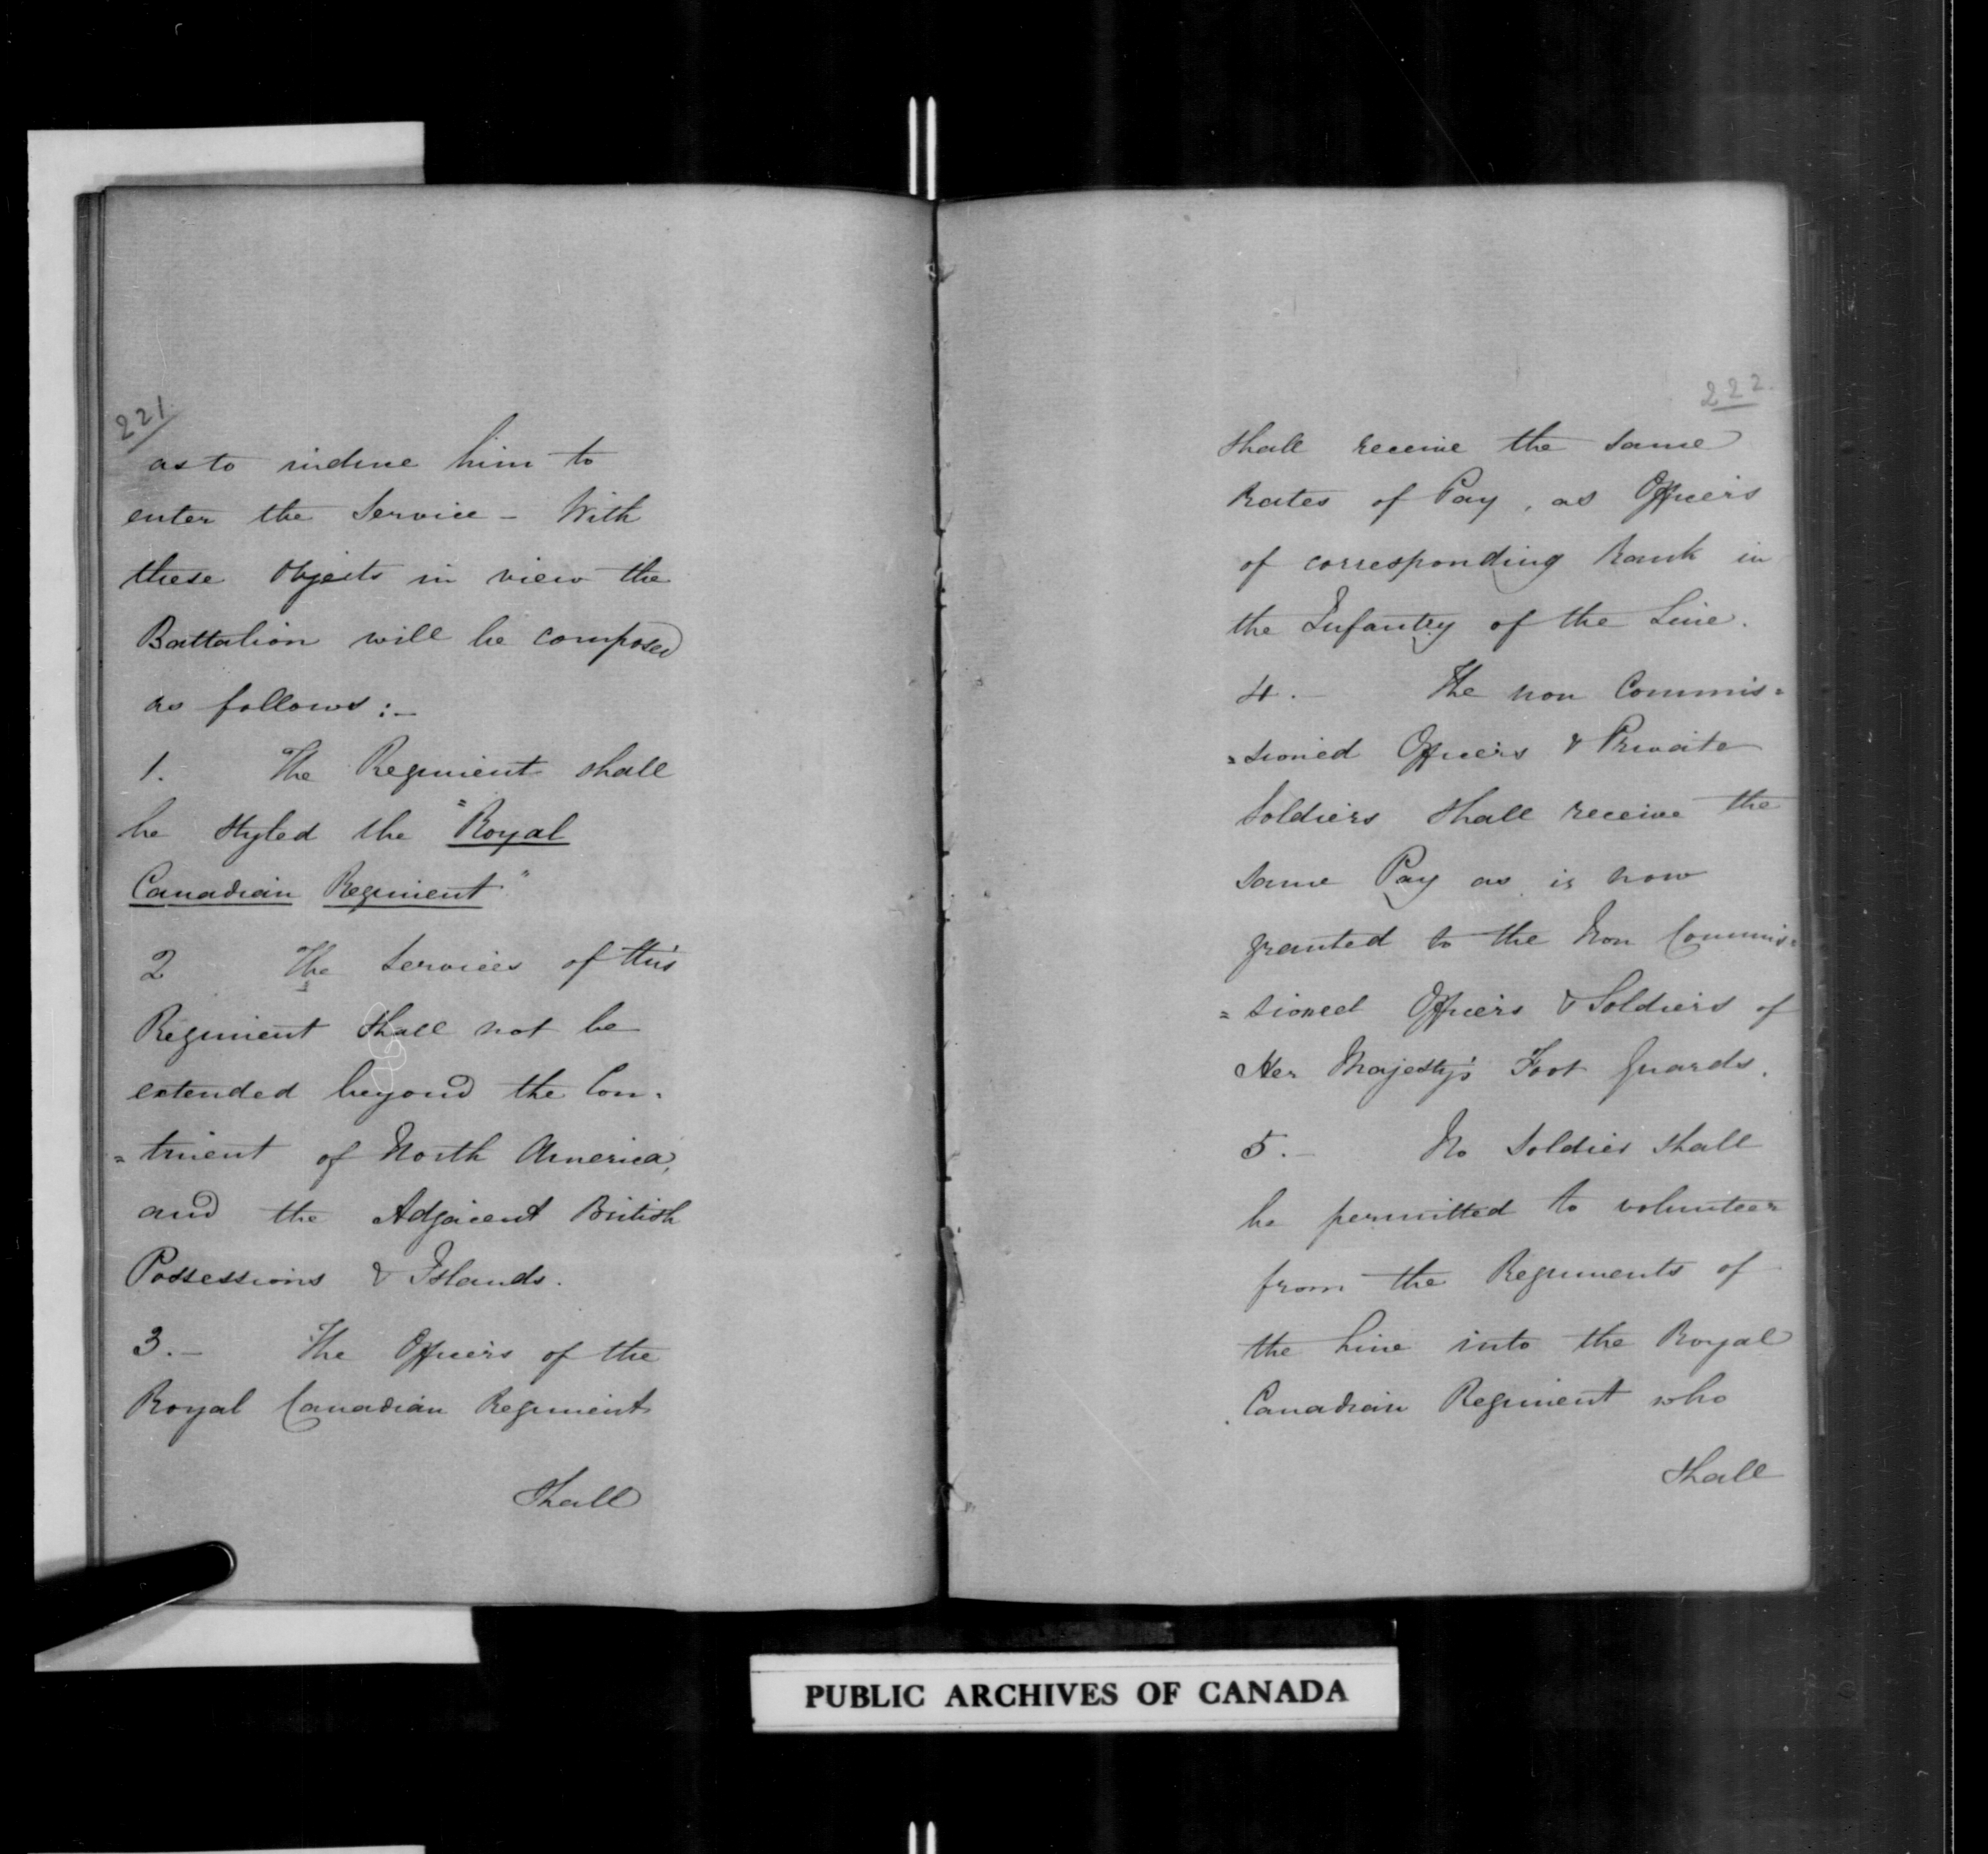 221
as to induce him to
enter the Service - With
these Objects in view the
Battalion will be composed
as follows:-
1. The Regiment shall
be styled the "Royal
Canadian Regiment"
2 The Services of this
Regiment shall not be
extended beyond the Con-
=tinent of North America,
and the Adjacent British
Possessions & Islands.
3.- The Officers of the
Royal Canadian Regiment
Shall
222.
Shall receive the same
Rates of Pay, as Officers
of corresponding Rank in
the Infantry of the Line.
4.- The non Commis=
=sioned Officers & Private
Soldiers shall receive the
same Pay as is now
granted to the Non Commis=
=sioned Officers & Soldiers of
Her Majesty's Foot Guards.
5.- No Soldier shall
be permitted to volunteer
from the Regiments of
the Line into the Royal
Canadian Regiment who
Shall
PUBLIC ARCHIVES OF CANADA